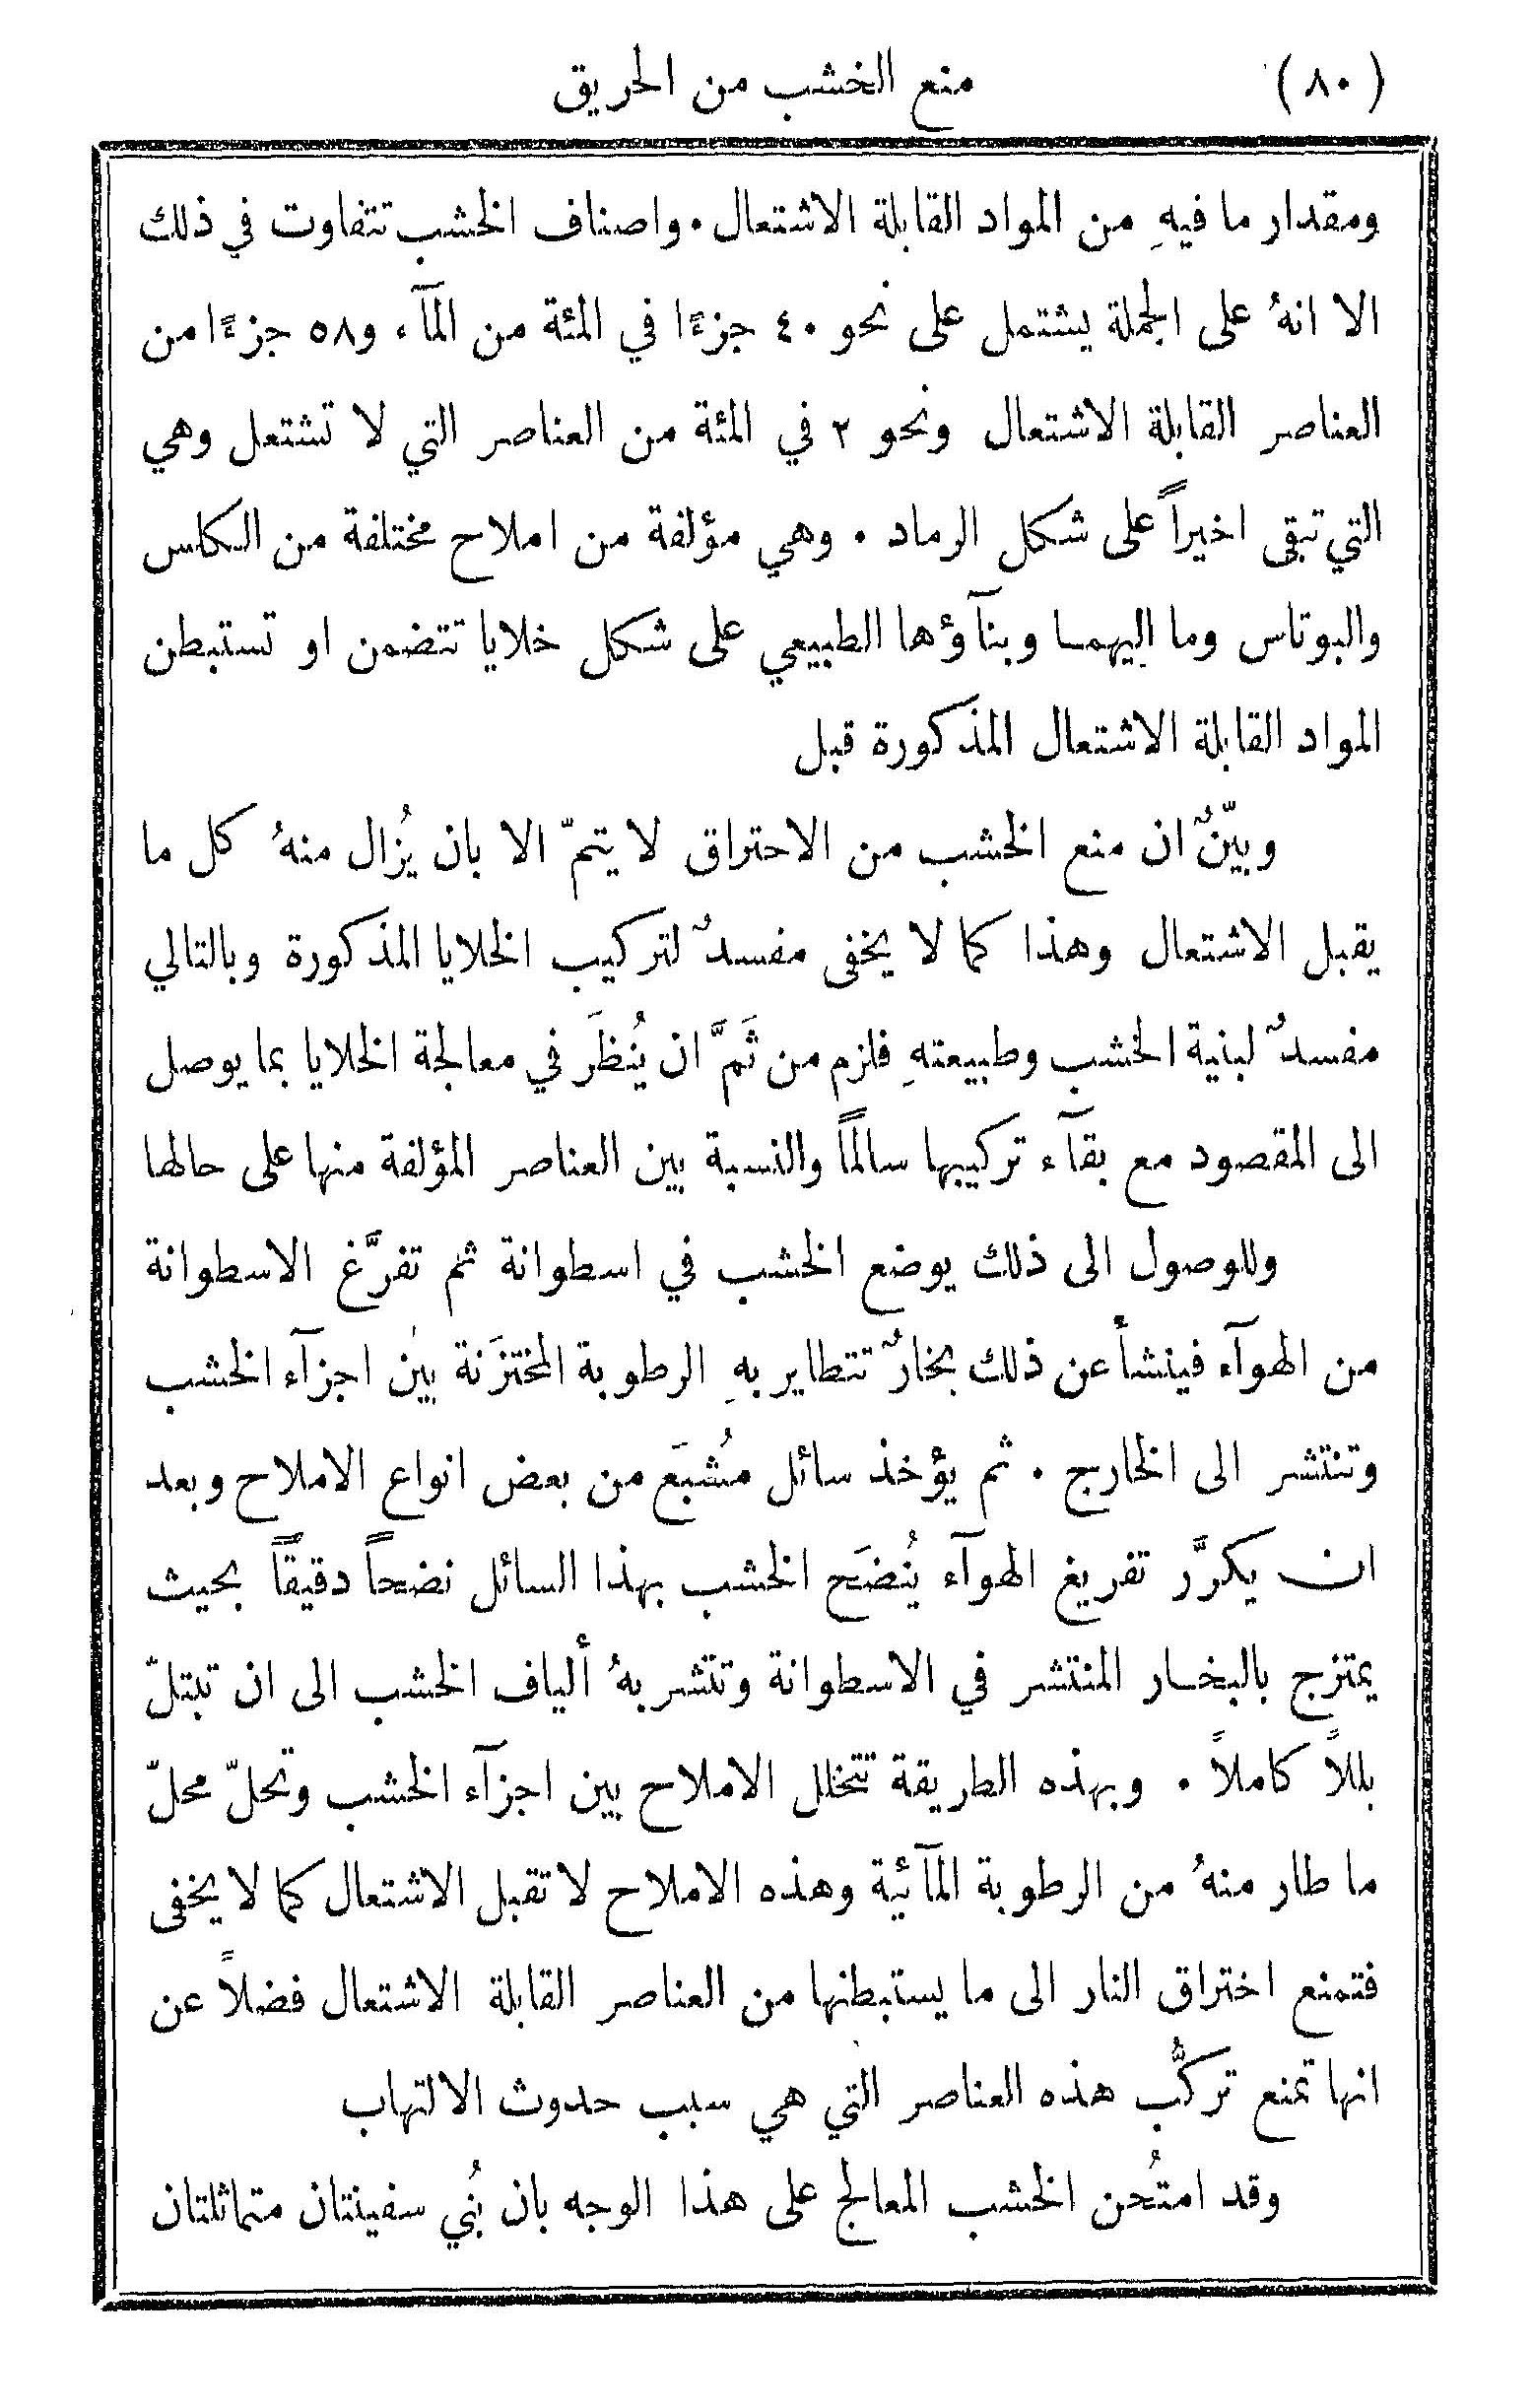 (٨٠) منع الخشب من الحريق
ومقدار ما فيهِ من المواد القابلة الاشتعال . واصناف الخشب تتفاوت في ذلك
الا انهُ على الجملة يشتمل على نحو ٤٠ جزءًا في المئة من المآء و٥٨ جزءًا من
العناصر القابلة الاشتعال ونحو ٢ في المئة من العناصر التي لا تشتعل وهي
التي تبقى اخيراً على شكل الرماد . وهي مؤلفة من املاح مختلفة من الكلس
والبوتاس وما اليهما وبنآؤها الطبيعي على شكل خلايا تتضمن او تستبطن
المواد القابلة الاشتعال المذكورة قبل
وبيّنٌ ان منع الخشب من الاحتراق لا يتمّ الا بان يُزال منهُ كل ما
يقبل الاشتعال وهذا كما لا يخفى مفسدٌ لتركيب الخلايا المذكورة وبالتالي
مفسدٌ لبنية الخشب وطبيعتهِ فلزم من ثَمَّ ان يُنظَر في معالجة الخلايا بما يوصل
الى المقصود مع بقآء تركيبها سالمًا والنسبة بين العناصر المؤلفة منها على حالها
وللوصول الى ذلك يوضع الخشب في اسطوانة ثم تفرَّغ الاسطوانة
من الهوآء فينشأ عن ذلك بخارٌ تتطاير بهِ الرطوبة المختزَنة بين اجزآء الخشب
وتنتشر الى الخارج . ثم يؤخذ سائل مُشبَع من بعض انواع الاملاح وبعد
ان يكرَّر تفريغ الهوآء يُنضَح الخشب بهذا السائل نضحاً دقيقاً بحيث
يمتزج بالبخار المنتشر في الاسطوانة وتتشربهُ ألياف الخشب الى ان تبتلّ
بللاً كاملاً . وبهذه الطريقة تتخلل الاملاح بين اجزآء الخشب وتحلّ محلّ
ما طار منهُ من الرطوبة المآئية وهذه الاملاح لا تقبل الاشتعال كما لا يخفى
فتمنع اختراق النار الى ما يستبطنها من العناصر القابلة الاشتعال فضلاً عن
انها تمنع تركُّب هذه العناصر التي هي سبب حدوث الالتهاب
وقد امتُحن الخشب المعالج على هذا الوجه بان بُني سفينتان متماثلتان